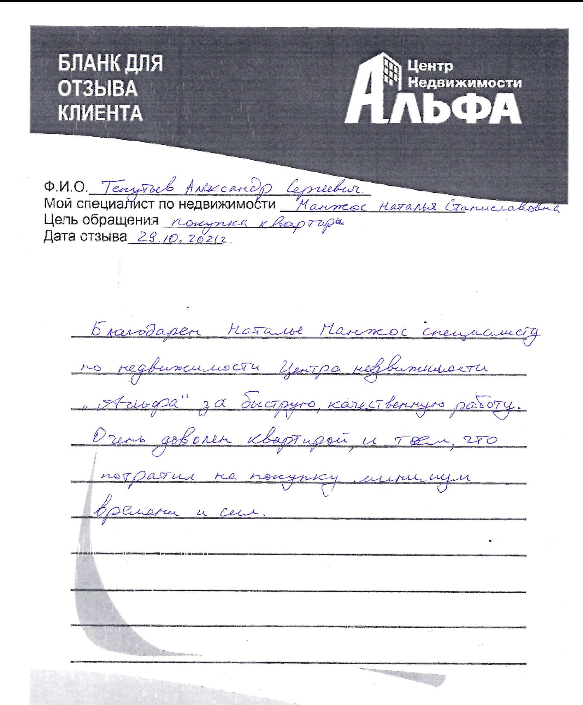 БЛАНК ДЛЯ
ОТЗЫВА
КЛИЕНТА
Центр
Недвижимости
АЛЬФА
Ф.И.О. Александр Сергеевич
Мой специалист по недвижимости Манжос Наталья Станиславовна
Цель обращения покупка квартиры
Дата отзыва 29.10.2021г
Благодарен Наталье Манжос специалисту
по недвижимости Центра недвижимости
„Альфа“ за быструю, качественную работу.
Очень доволен квартирой, и тем, что
потратил на покупку минимум
времени и сил.